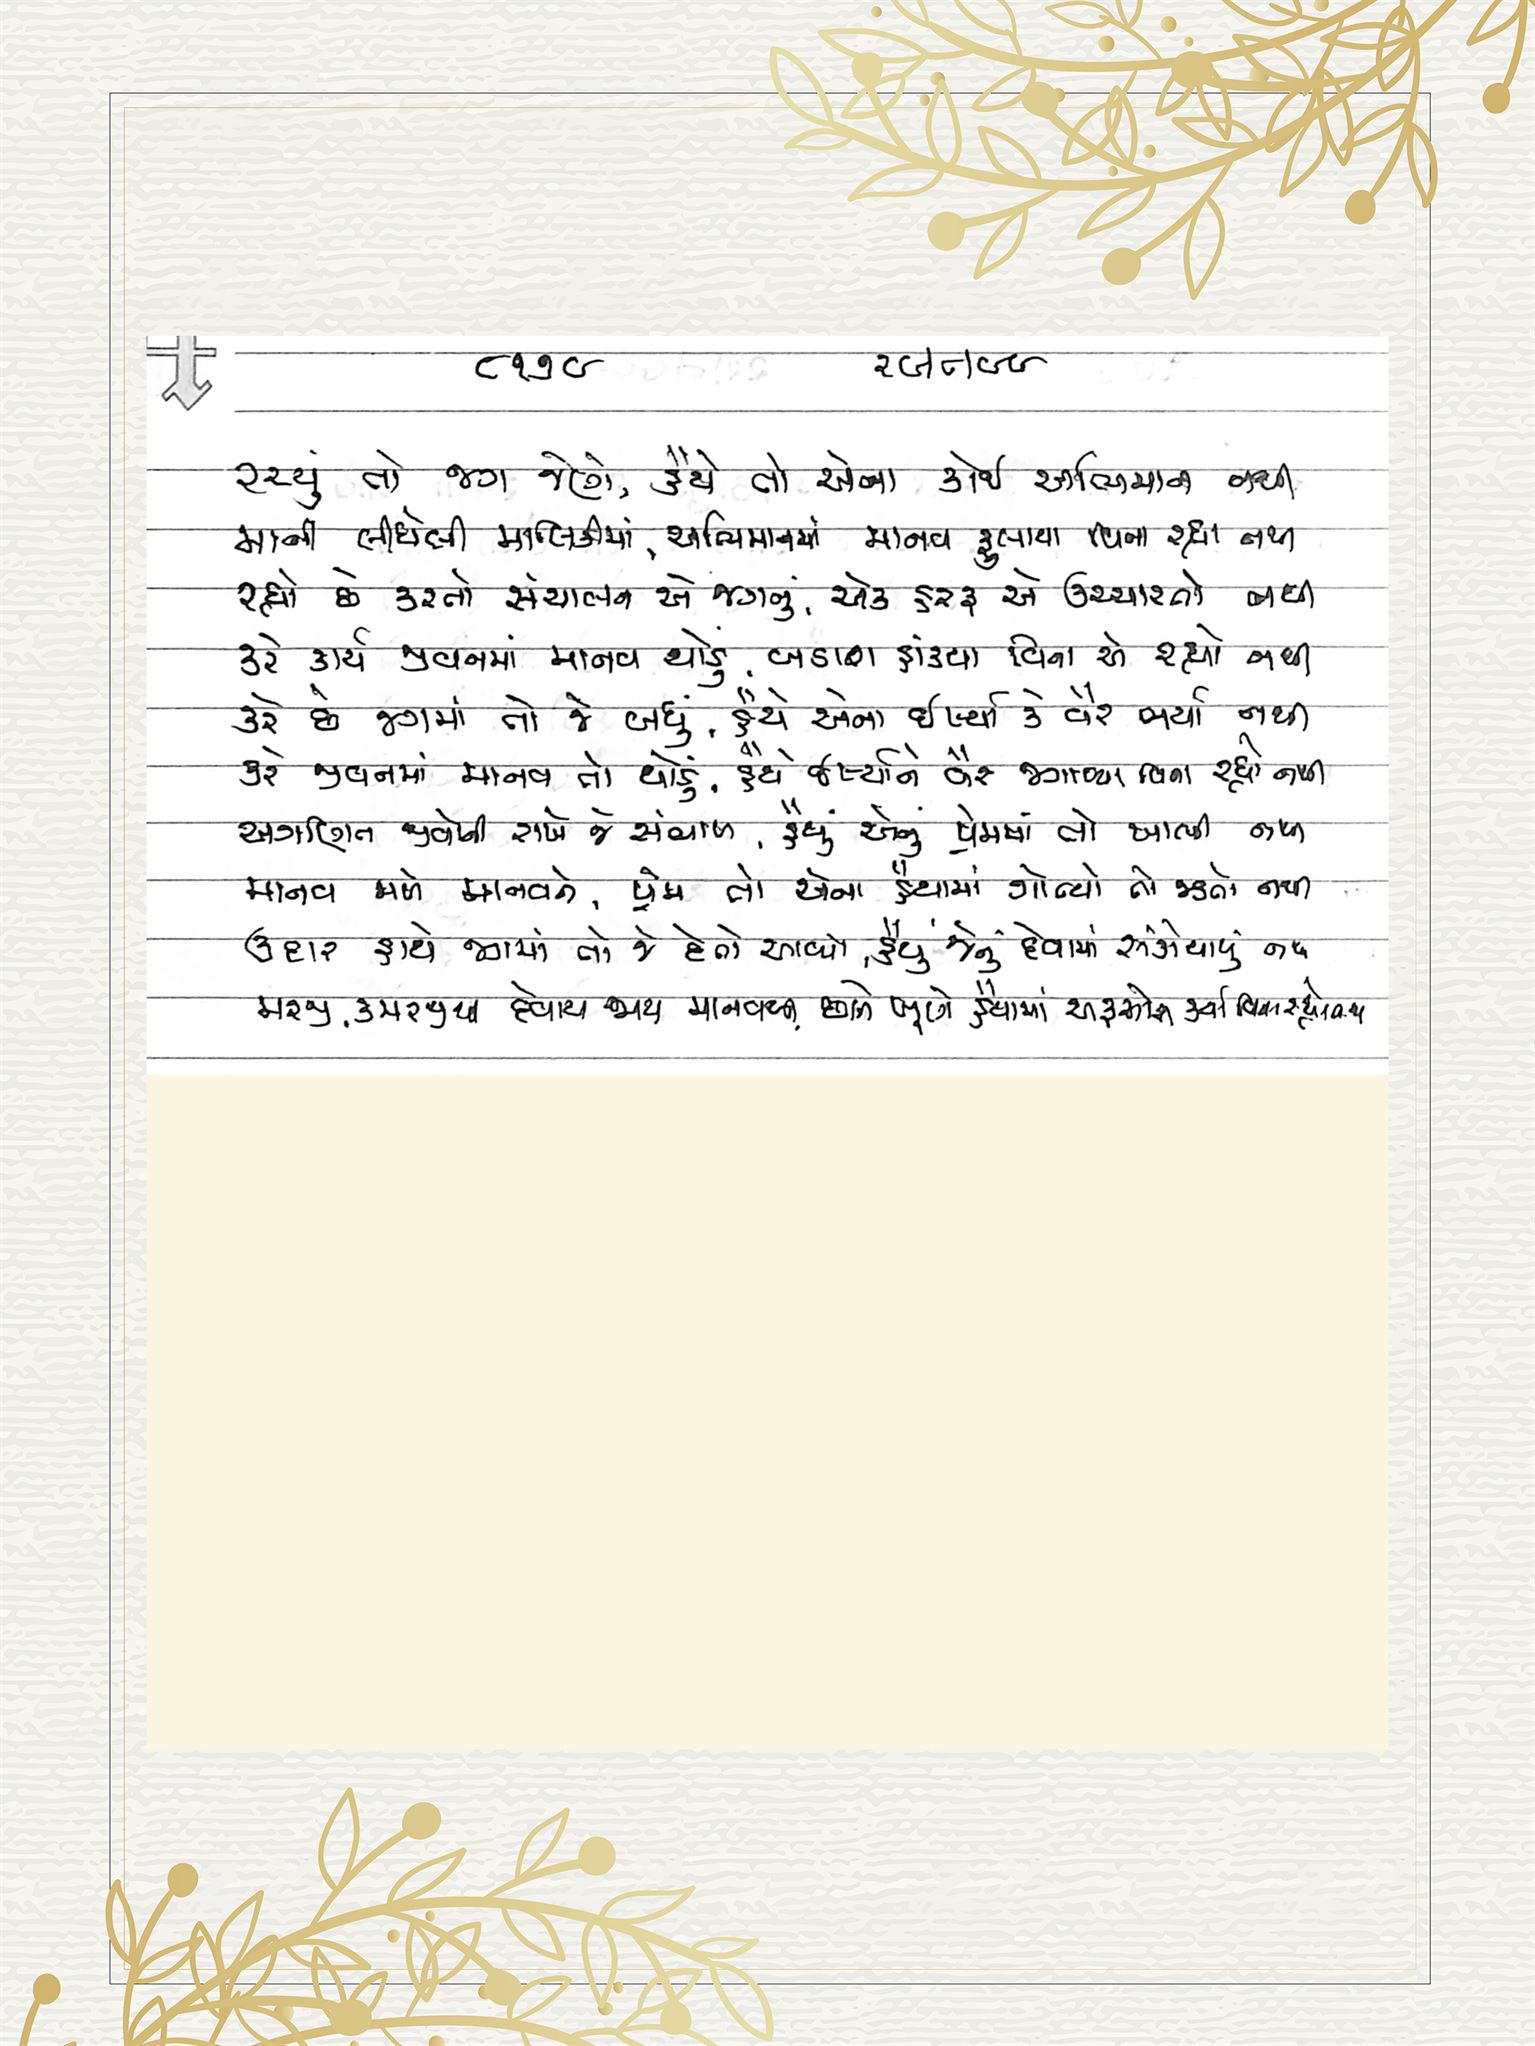 ૮૧૭૯
રચ્યું તો જગ જેણે, હૈયે તો એના કોઈ અભિમાન નથી
માની લીધેલી માલિકીમાં, અભિમાનમાં માનવ ફુલાયા વિના રહ્યા નથી
રહ્યો છે કરતો સંચાલન એ જગનું, એક હરફ એ ઉચ્ચારતો નથી
કરે કાર્ય જીવનમાં માનવ થોડું, બડાશ હાંક્યા વિના એ રહ્યો નથી
કરે છે જગમાં તો જે બધું, હૈયે એના ઈર્ષ્યા કે વૈર ભર્યા નથી
કરે જીવનમાં માનવ તો થોડું, હૈયે ઈર્ષ્યાને વૈર જગાવ્યા વિના રહ્યો નથી
અગણિત જીવોની રાખે જે સંભાળ, હૈયું એનું પ્રેમમાં તો ખાલી નથી
માનવ મળે માનવને, પ્રેમ તો એના હૈયામાં ગોત્યો તો જડતો નથી
ઉદાર હાથે જગમાં તો જે દેતો આવ્યો, હૈયું જેનું દેવામાં સંકોચાયું નથી
મરજી, કમરજીએ દેવાય જાય માનવથી, છાને ખૂણે હૈયામાં અફસોસ કર્યા વિના રહ્યો નથી